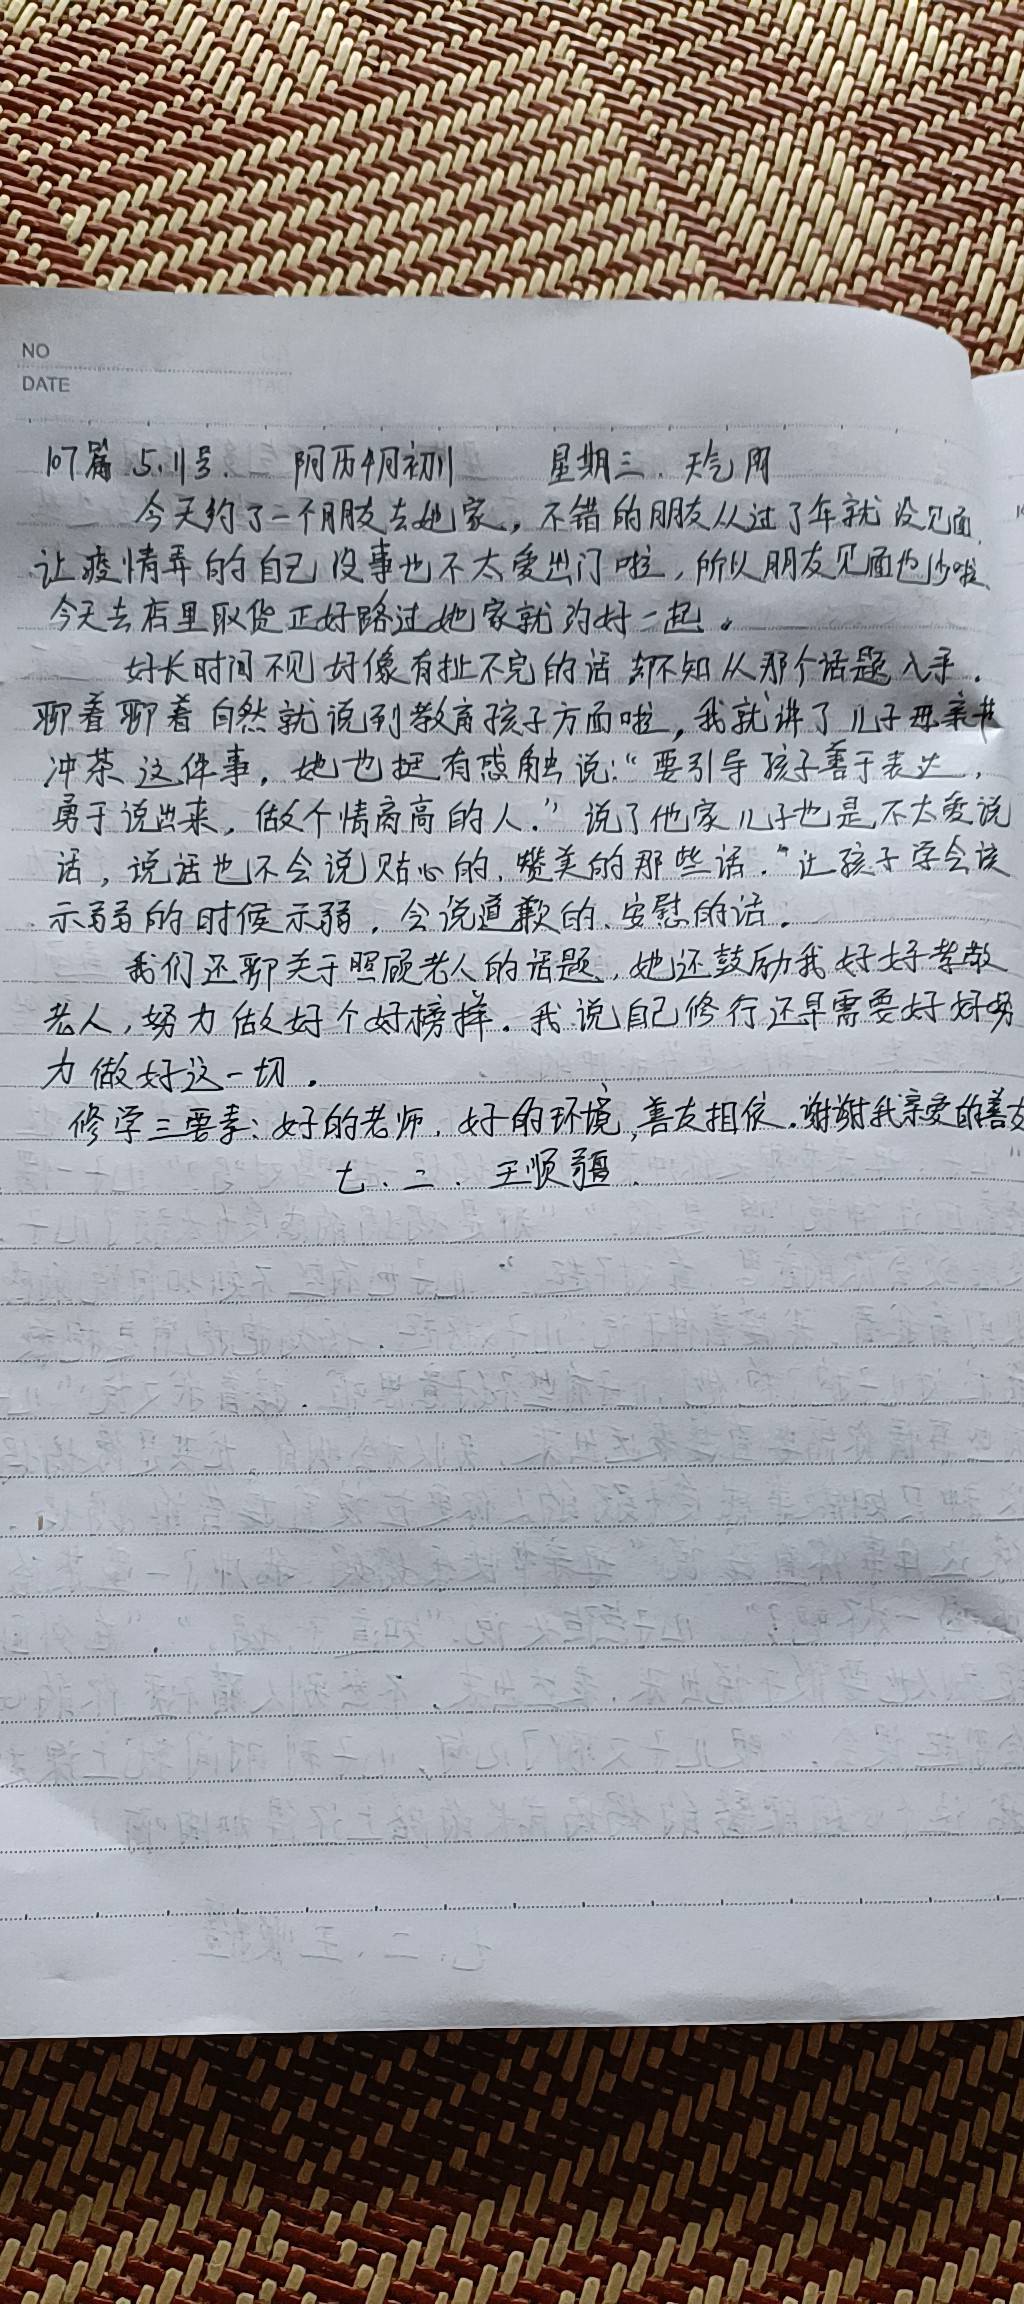 NO
DATE
107篇 5.11号. 阴历4月初11 星期三. 天气阴
今天约了一个朋友去她家,不错的朋友从过了年就没见面,
让疫情弄的自己没事也不太爱出门啦,所以朋友见面也少啦,
今天去店里取货正好路过她家就约好一起。
好长时间不见好像有扯不完的话却不知从那个话题入手.
聊着聊着自然就说到教育孩子方面啦,我就讲了儿子母亲节
冲茶这件事,她也挺有感触说:“要引导孩子善于表达,
勇于说出来,做个情商高的人.”说了他家儿子也是不太爱说
话,说话也不会说贴心的,赞美的那些话.“让孩子学会该
示弱的时候示弱,会说道歉的、安慰的话.
我们还聊关于照顾老人的话题,她还鼓励我好好孝敬
老人,努力做好个好榜样.我说自己修行还早需要好好努
力做好这一切.
修学三要素:好的老师,好的环境,善友相依.谢谢我亲爱的善友
七、二、王顺疆.